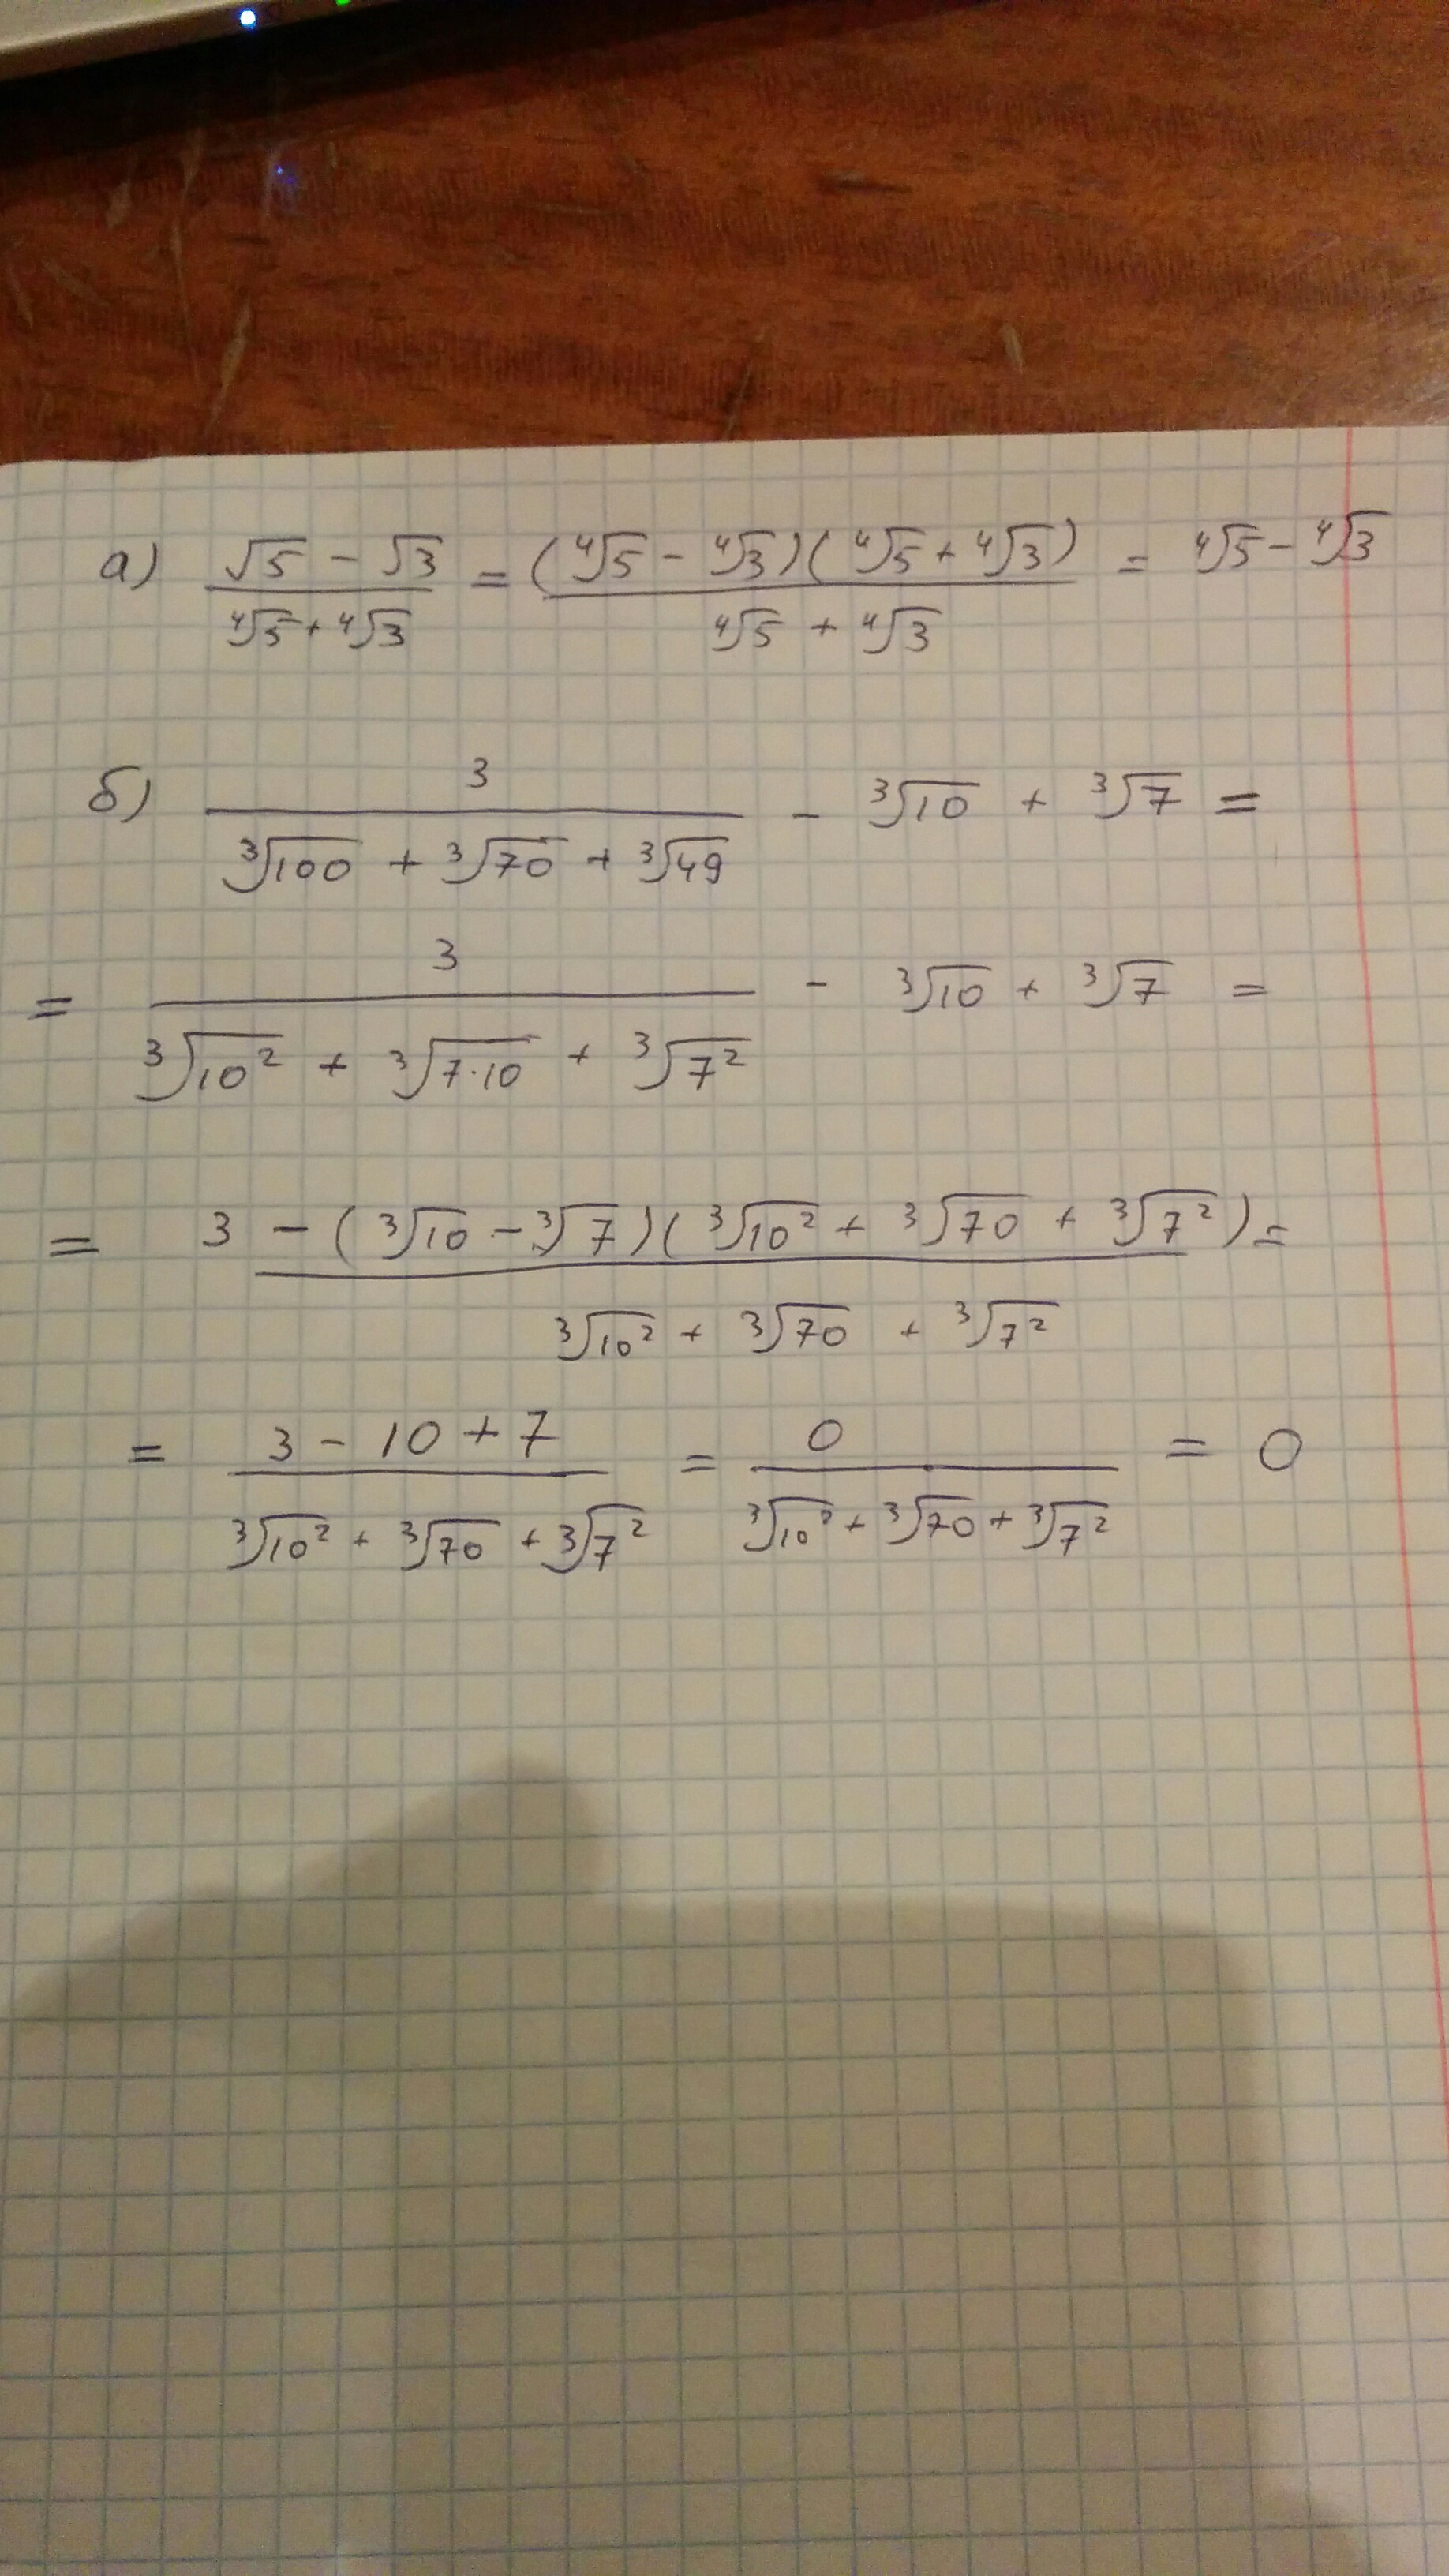 а) (√5 − √3)/(⁴√5 + ⁴√3) = ((⁴√5 − ⁴√3)(⁴√5 + ⁴√3))/(⁴√5 + ⁴√3) = ⁴√5 − ⁴√3
б) 3/(³√100 + ³√70 + ³√49) − ³√10 + ³√7 =
= 3/(³√10² + ³√7·10 + ³√7²) − ³√10 + ³√7 =
= (3 − (³√10 − ³√7)(³√10² + ³√70 + ³√7²))/(³√10² + ³√70 + ³√7²) =
= (3 − 10 + 7)/(³√10² + ³√70 + ³√7²) = 0/(³√10² + ³√70 + ³√7²) = 0